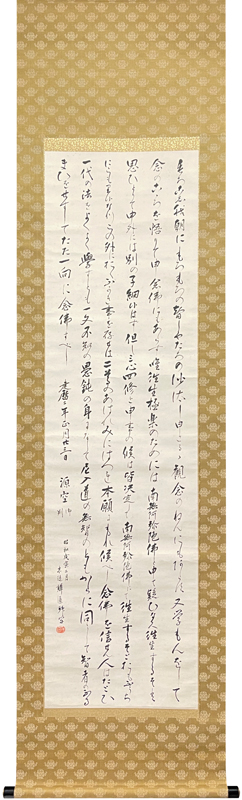 もろこし我朝にもろもろの智者たちの沙汰し申さるゝ観念のねんにもあらす又学もんをして
念のこゝろを悟りて申念佛にもあらす唯往生極楽のためには南無阿弥陀佛と申て疑ひなく往生するそと
思ひとりて申外には別の子細候はす但三心四修と申事の候は皆決定して南無阿弥陀佛にて往生するそと思ふうち
にこもり候なりこの外におくふかき事を存せは二尊のあはれみにはつれ本願にもれ候へし念佛を信せん人はたとひ
一代の法をよくよく學すとも一文不知の愚鈍の身になして尼入道の無智のともからに同して智者のふる
まひをせすしてたた一向に念佛すへし 建暦二年正月廿三日 源空
昭和